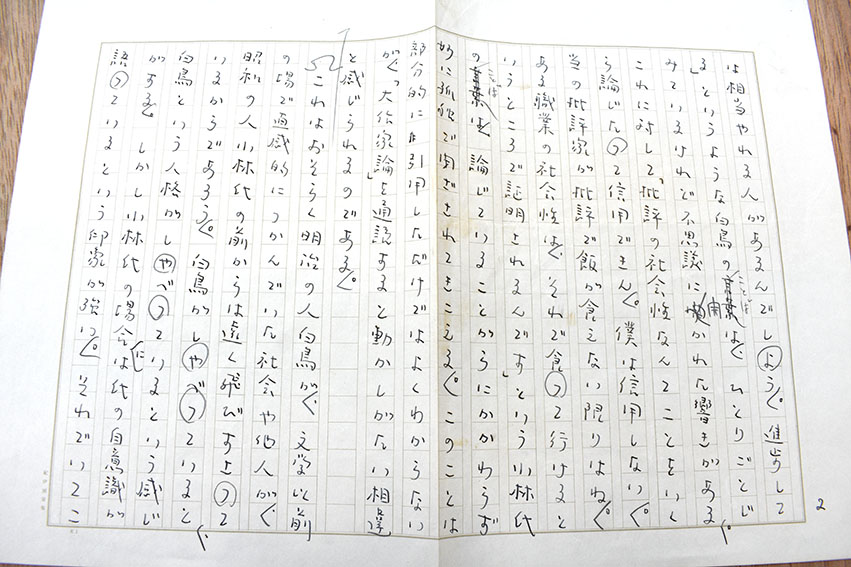 2
は相当やれる人があるんでしょう。進歩して
る」というような白鳥のことばは、ひとりごとじ
みているけれど不思議に開かれた響きがある。
これに対して「批評の社会性なんてことをいく
ら論じたって信用できん。僕は信用しない。
当の批評家が批評で飯が食えない限りはね。
ある職業の社会性は、それで食って行けると
いうところで証明されるんです」という小林氏
のことばは論じていることがらにかかわらず
妙に孤独で閉ざされてきこえる。このことは
部分的に引用しただけではよくわからない
が、「大作家論」を通読すると動かしがたい相違
と感じられるのである。
これはおそらく明治の人白鳥が、文学以前
の場で直感的につかんでいた社会や他人が、
昭和の人小林氏の前からは遠く飛びすさって
いるからであろう。白鳥がしゃべっていると
白鳥という人格がしゃべっているという感じ
がする。しかし小林氏の場合には氏の自意識が
語っているという印象が強い。それでいてこ